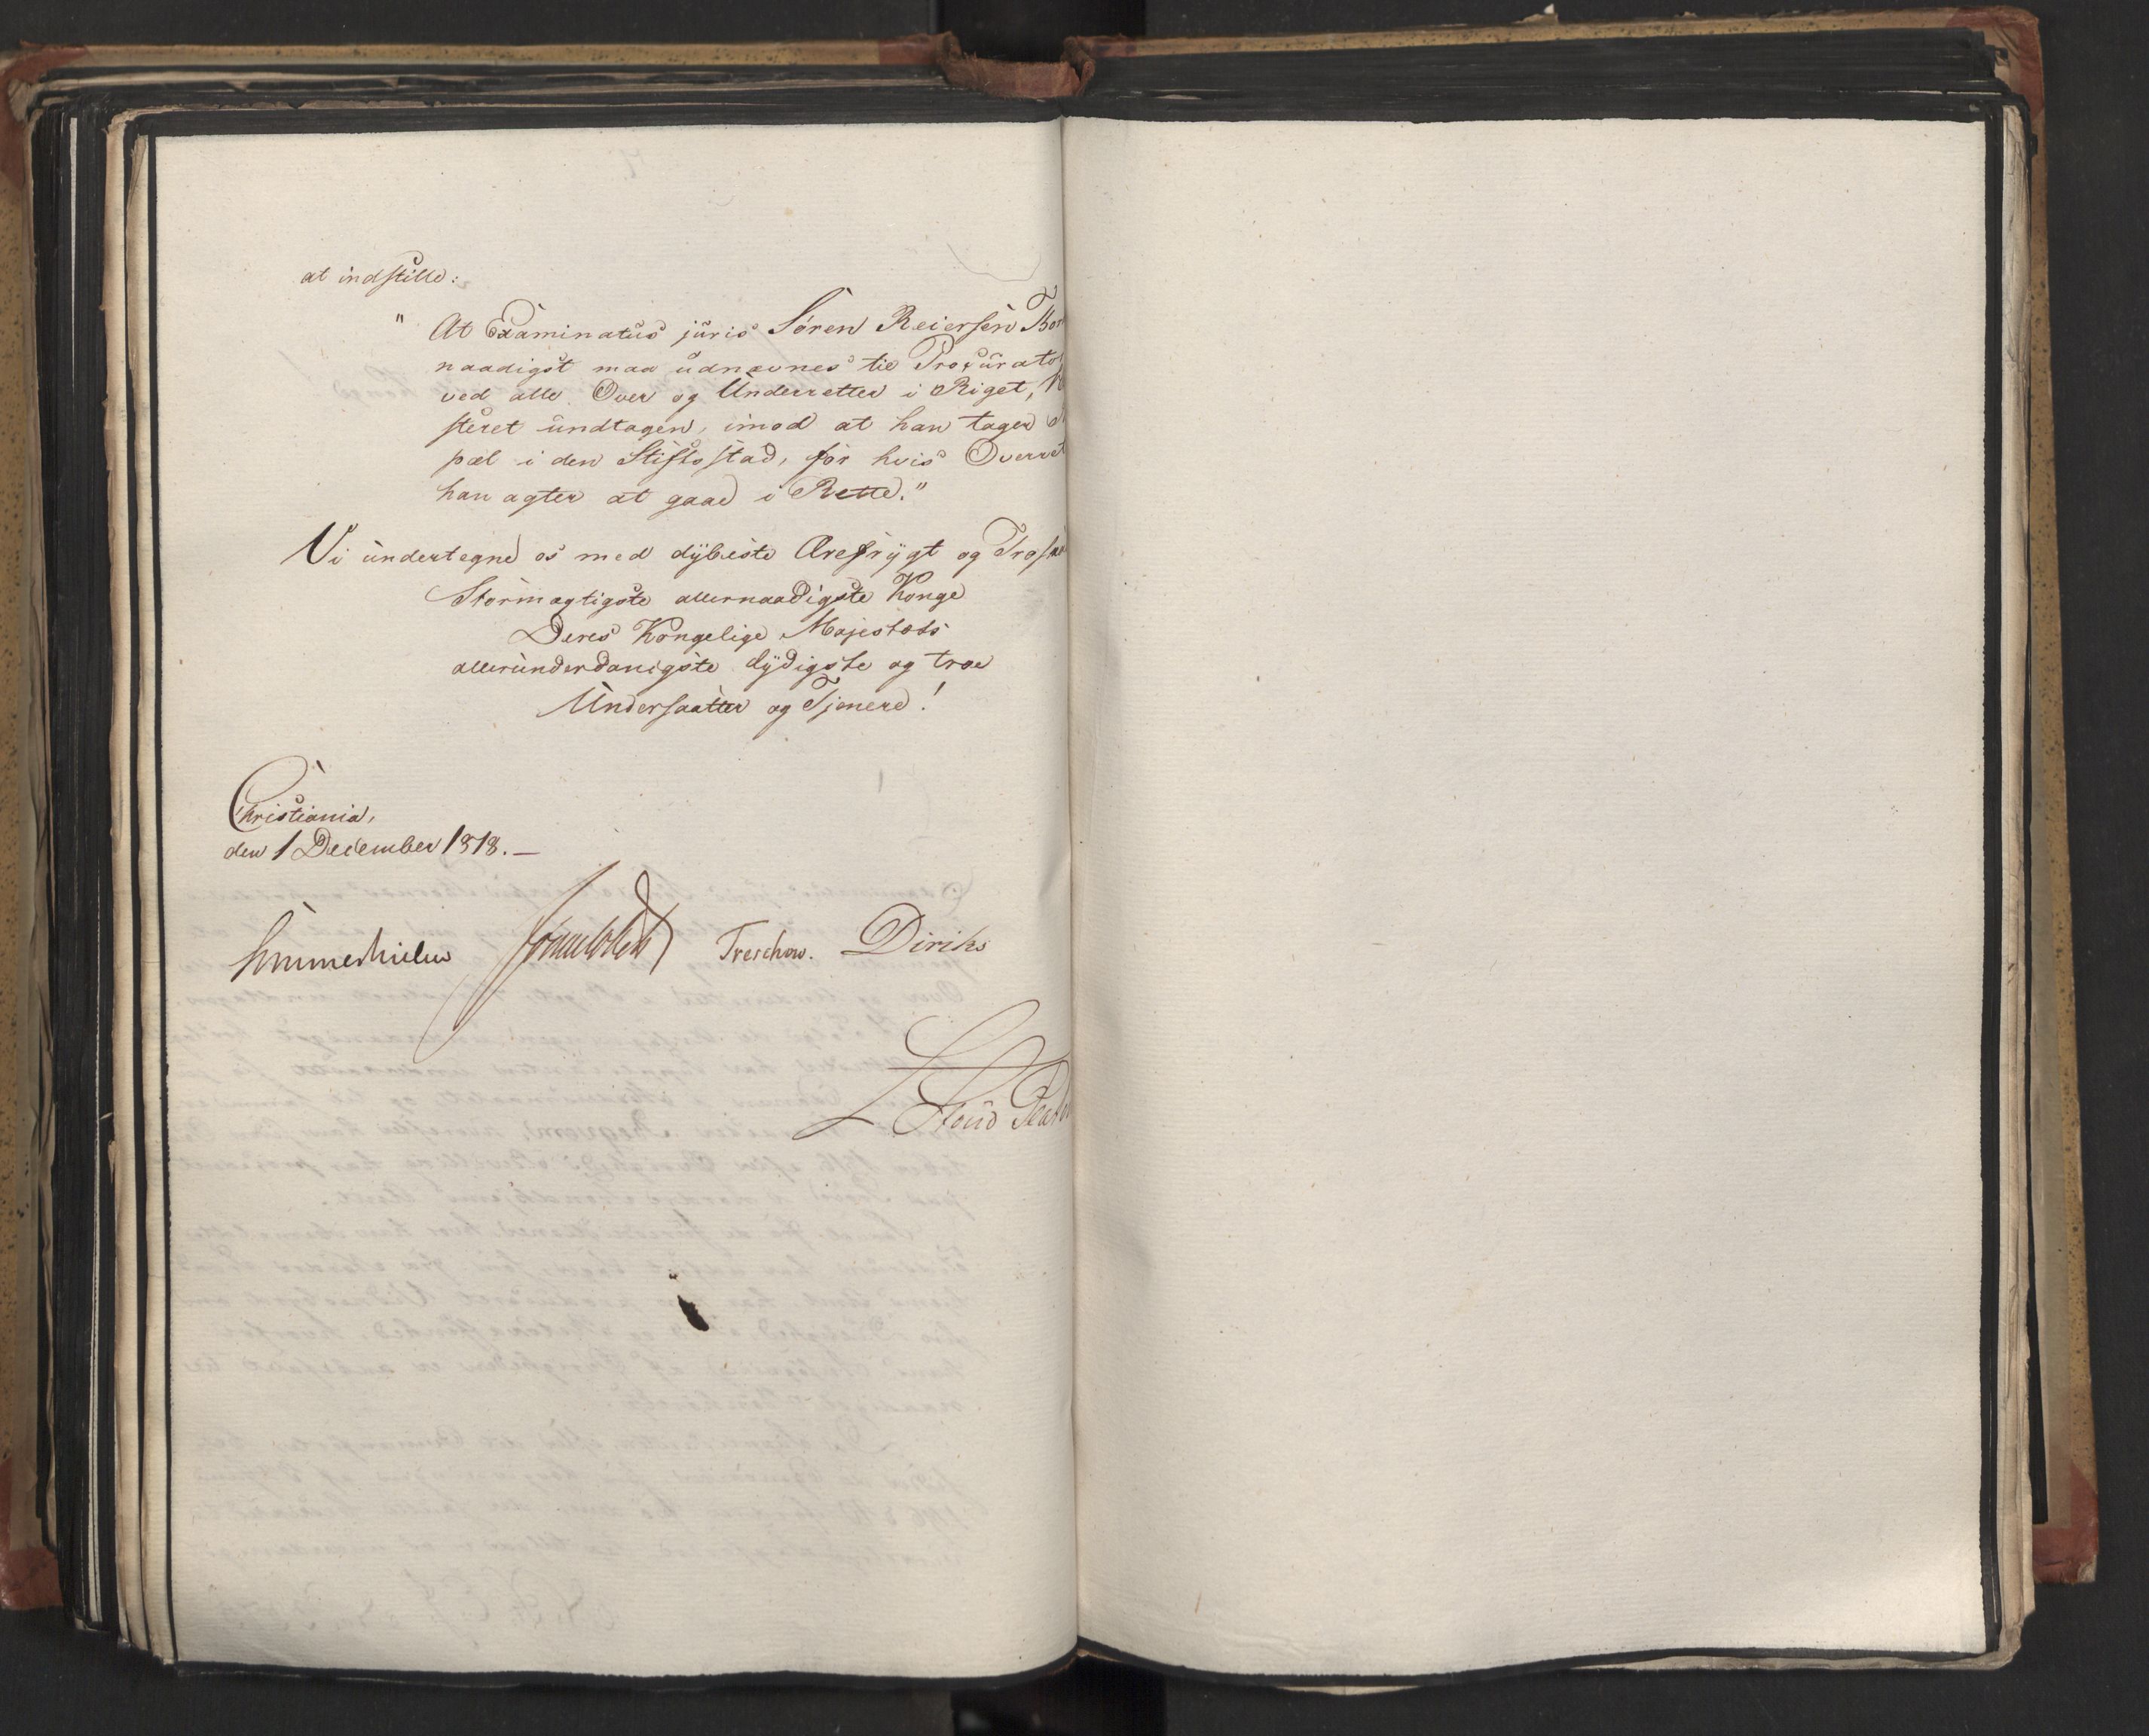 at indstille:
" At Examinatus juris Sören Reiersen
naadigst maa udnævnes til Procurator
ved alle Over og Underretter i Riget,
steret undtagen, imod at han tager
pæl i den Stiftsstad, for hvis Overret
han agter at gaae i Rette."
Vi undertegne os med dybeste Ærefrygt og
Stormægtigste allernaadigste Konge
Deres Kongelige Majestæts
allerunderdanigste lydigste og troe
Undersaatter og Tjenere!
Christiania,
den 1 December 1818. —
Sommerhielm Treschow. Diriks